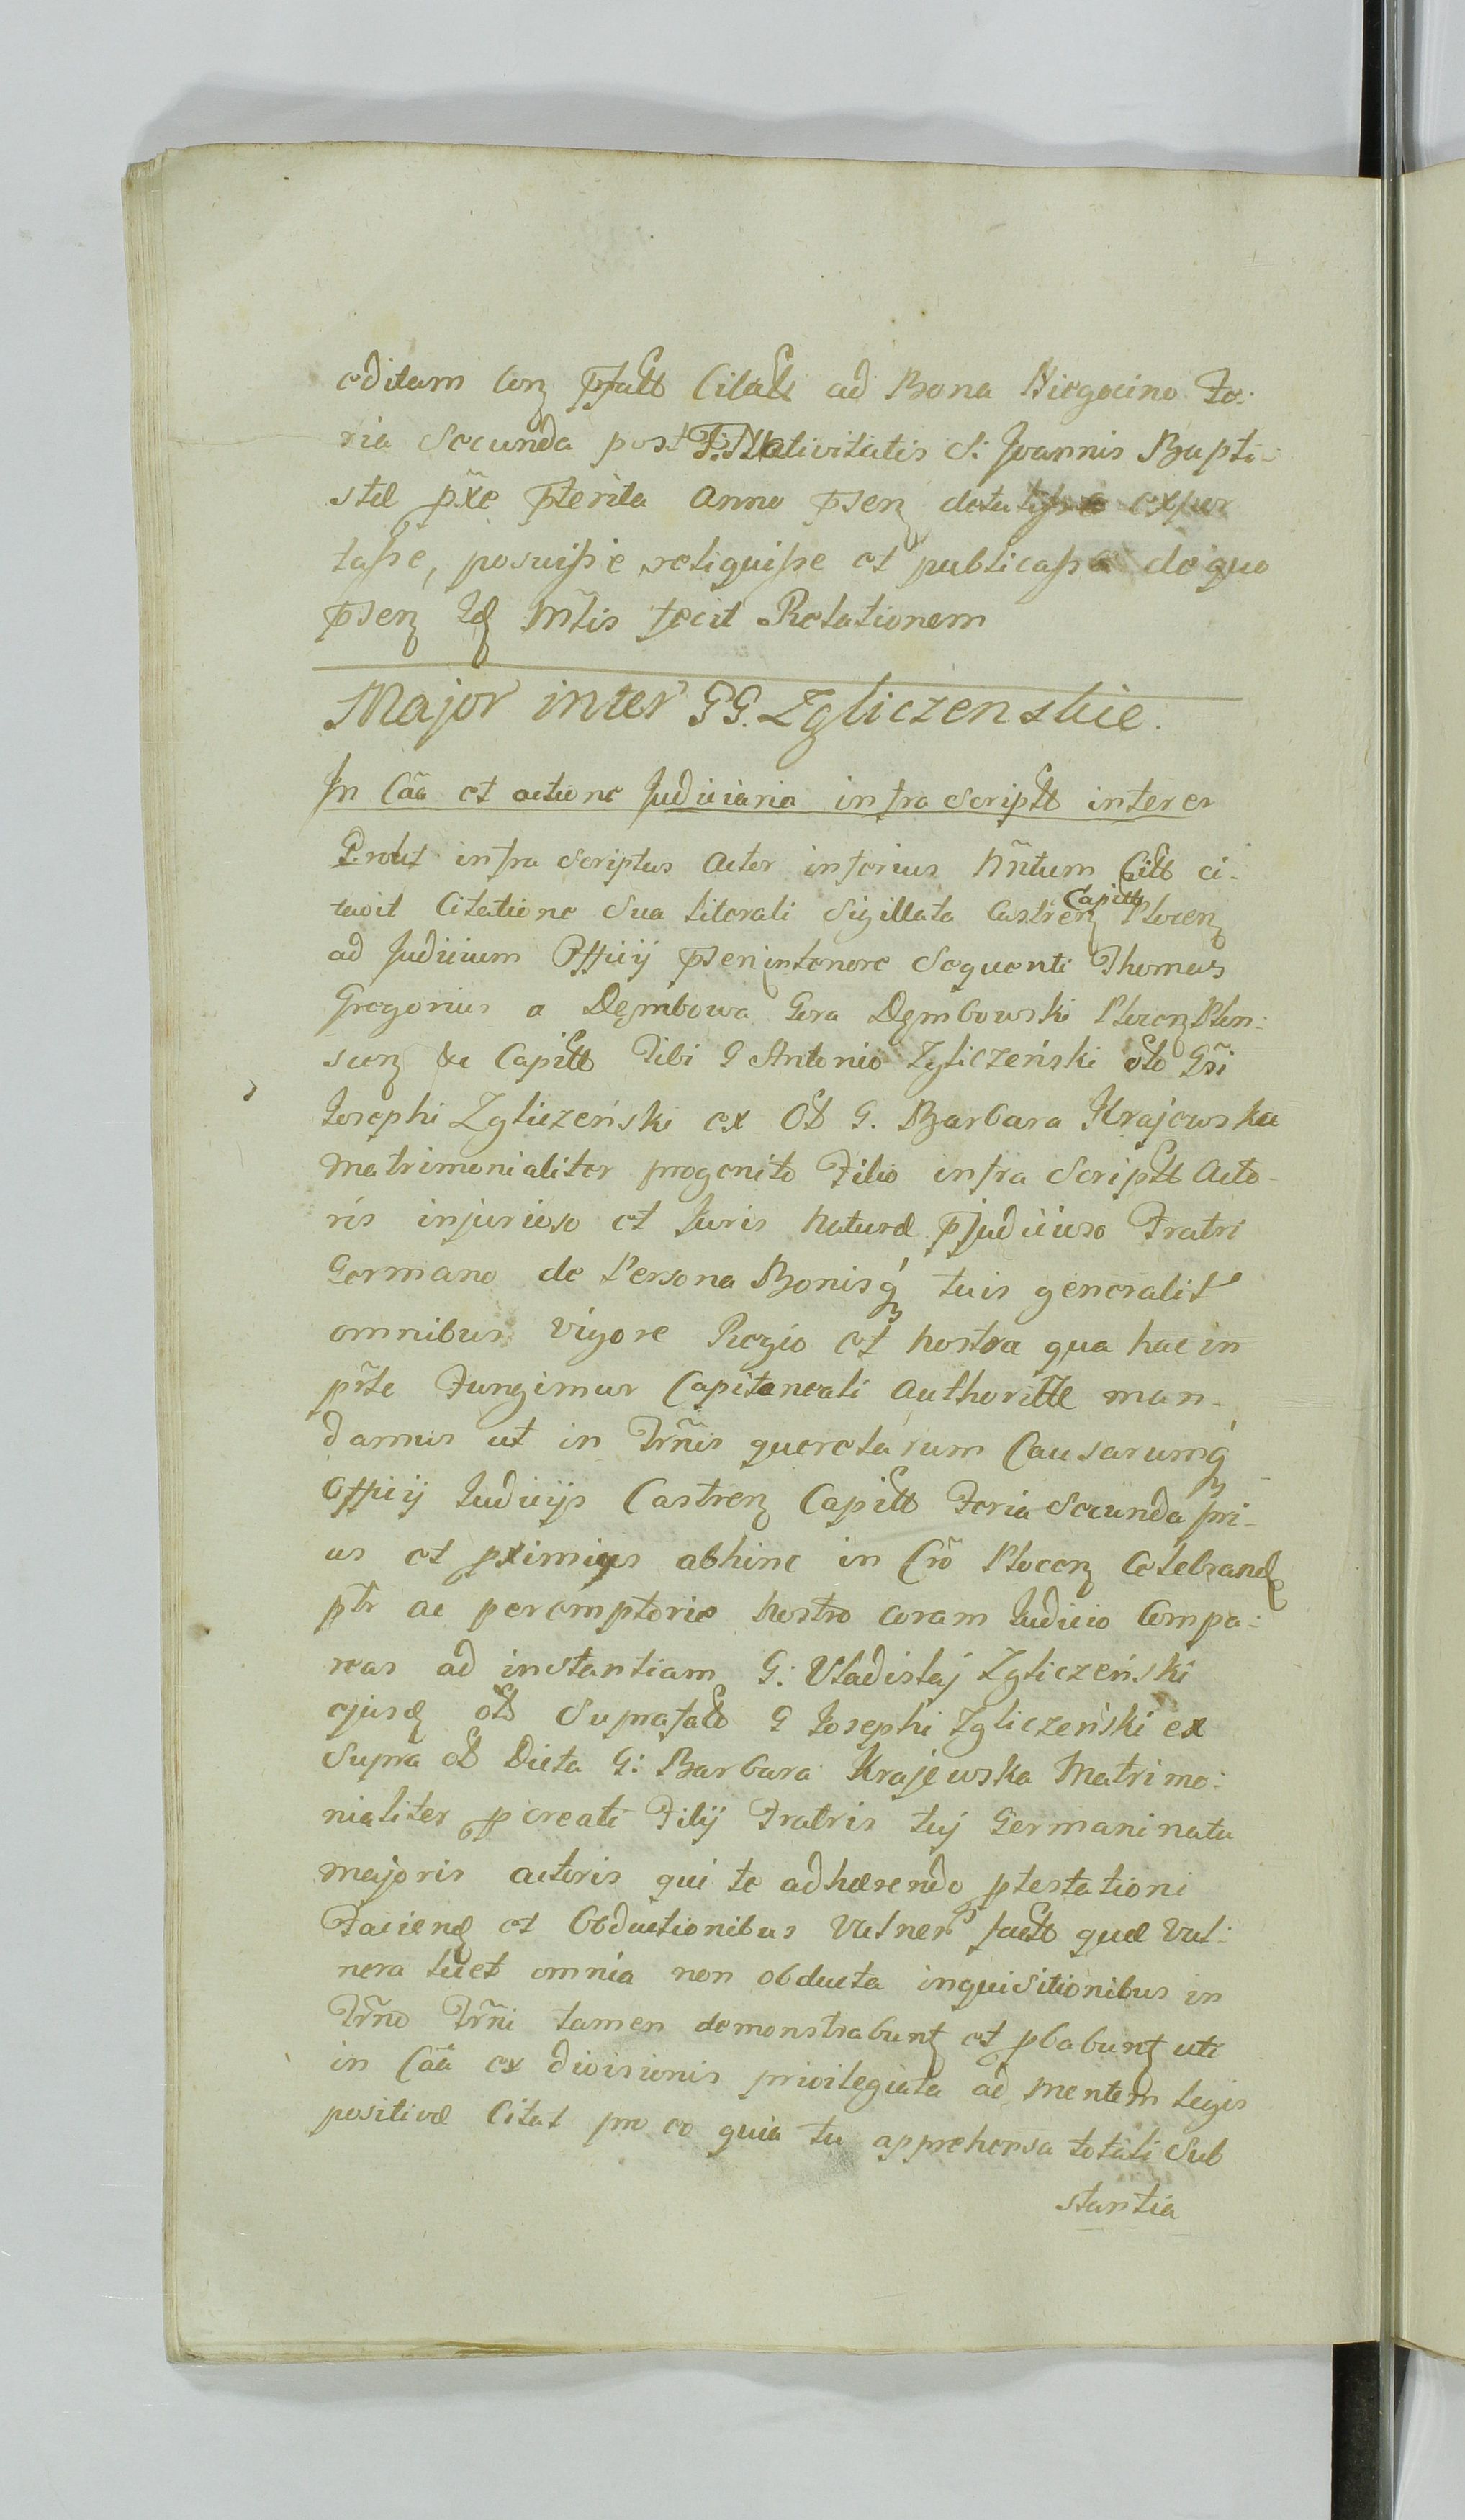 editam Conz pfatt Citatt ad Bona Niegocino Fe:
ria Secunda post F: Nativitatis S: Joannis Bapti:
stæ pxe pterita Anno psenz detulisse expor
tasse, posuisse, reliquisse et publicasse de quo
psenz Idq Mtis fecit Relationem
Major inter GG. Zgliczenskie.
In Cãa et actione Judiciaria infra Scriptt inter er
Prout infra Scriptus Actor inferius Nñtum Citt ci-
tavit Citatione Sua literali Sigillata Castrenz Capitt Plocenz
ad Judicium Officij psenz in tenore Sequenti Thomas
Gregorius a Dembowa Gora Dembowski Plocenz Plon:
scenz &c Capitt Tibi G Antonio Zgliczeński olo Gñi
Josephi Zgliczeński ex Ol G. Barbara Krajewska
Matrimonialiter progenito Filio infra Scriptt Acto-
ris injurioso et Juris Naturæ pjudicioso Fratri
Germano de Persona Bonisq tuis generalit
omnibus vigore Regio et Nostra qua hac in
pr̃te Fungimur Capitaneali Authoritte man-
damus ut in Tr̃nis querelarum Causarumq
Officij Judicijs Castrenz Capitt Feria Secunda pri-
us et pximius abhinc in Cr̃o Plocenz Celebrand
ptr ac peremptorie Nostro coram Judicio Compa:
reas ad instantiam G: Vladislaj Zgliczeński
ejusd olo Suprafatt G Josephi Zgliczeński ex
Supra ol Dicta G: Barbara Krajewska Matrimo:
nialiter pcreati Filij Fratris tuj Germani natu
majoris actoris qui te adhærendo ptestationi
Faciend et Obductionibus Vulner factt quæ Vul:
nera licet omnia non obducta inquisitionibus in
Tr̃no Tr̃ni tamen demonstrabunt et pbabunt uti
in Cãa ex divisionis privilegiata ad mentem legis
positivæ Citat pro eo quia tu apprehensa totali Sub
stantia